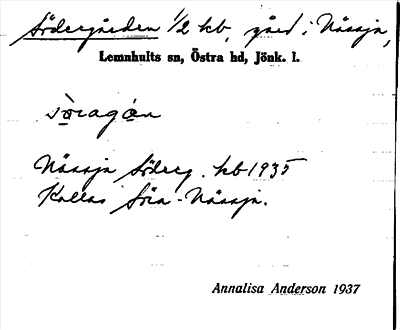 Södergården 1/2 kb, gård i Nässja,
Lemnhults sn, Östra hd, Jönk. l.
söragån
Nässja Söderg. kb 1935
Kallas Söra-Nässja.
Annalisa Anderson 1937